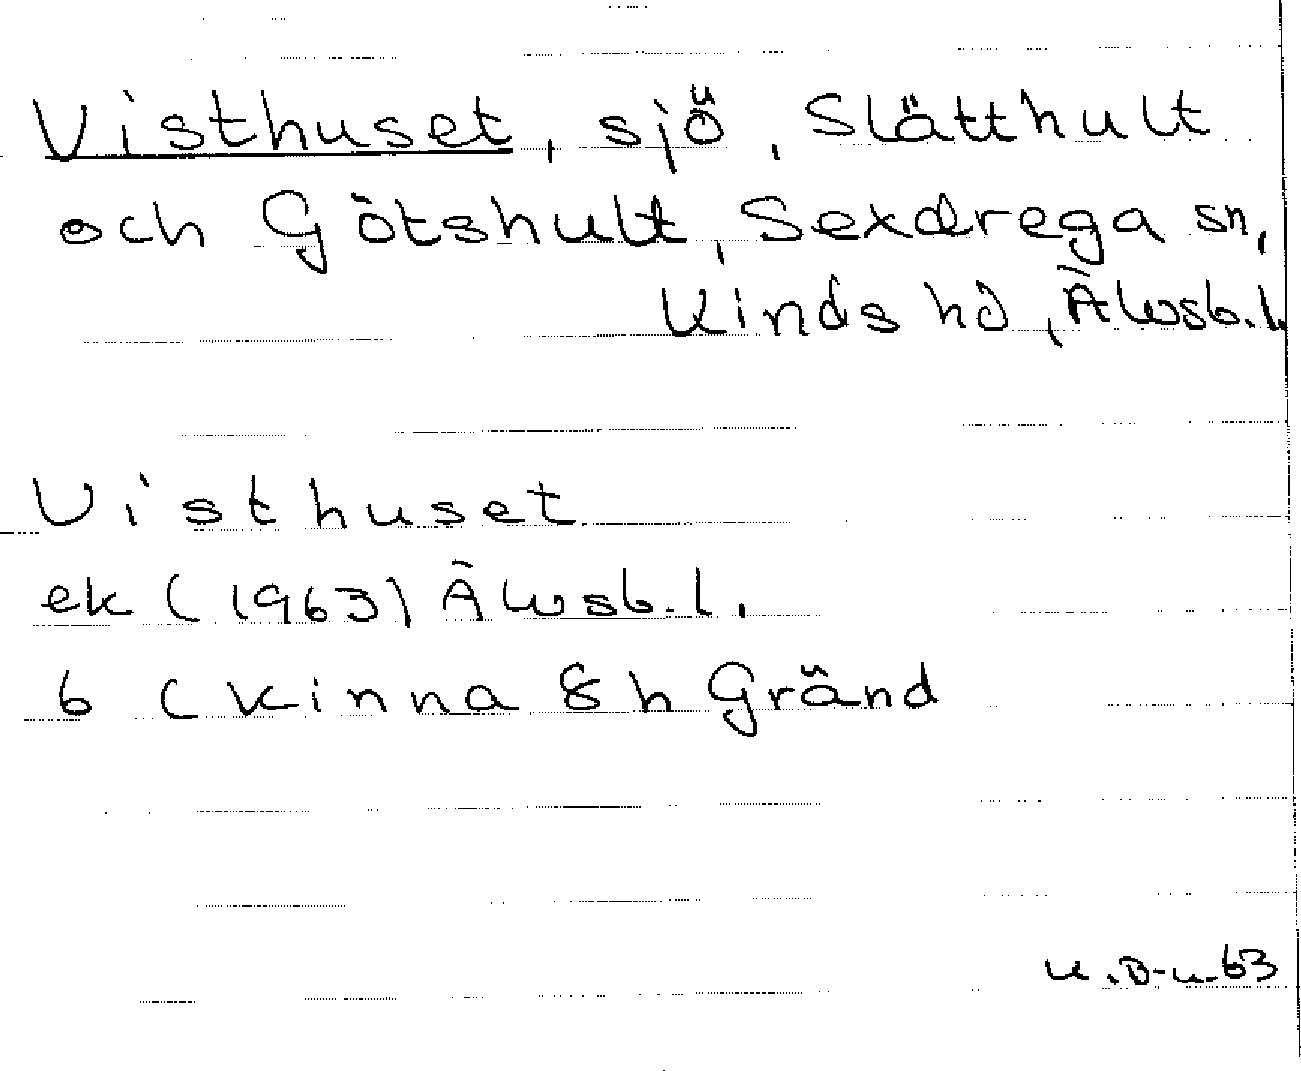 Visthuset, sjö, Slätthult
och Götshult, Sexdrega sn,
Kinds hd, Älvsb.l.
Visthuset
ek (1963) Älvsb.l.
6 (Kinna 8h Gränd
63